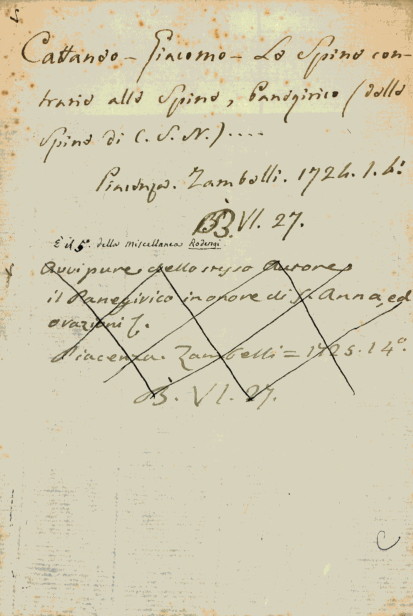 Cattaneo - Giacomo - Le Spine con-
trarie alle Spine, Panegirico (delle
Spine di C. S. N.) ....
Piacenza. Zambelli. 1724. 1. 4º.
BB. VI. 27.
È il 5º. della miscellanea Rodessi
Avvi pure dello stesso Autore
il Panegirico in onore di S. Anna, ed
orazioni
Piacenza. Zambelli = 1725. 1 4º.
B. VI. 27.
C